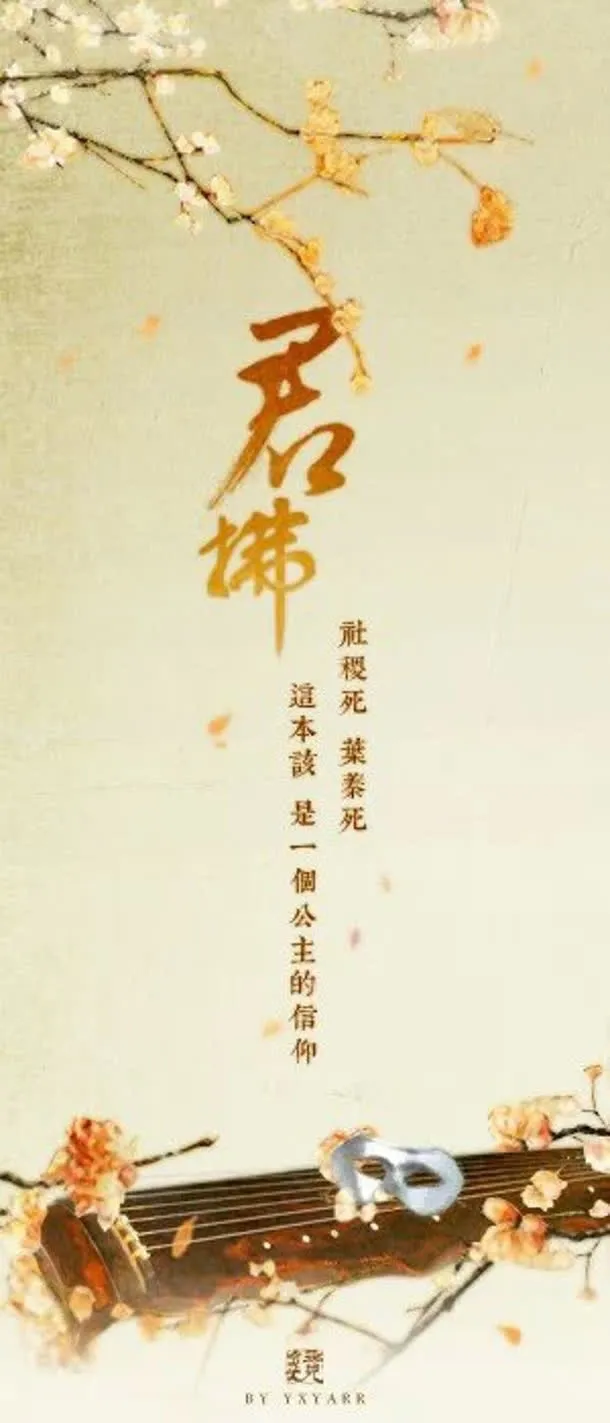 君拂
社稷死 葉蓁死
這本該 是一個公主的信仰
BY YXYARR